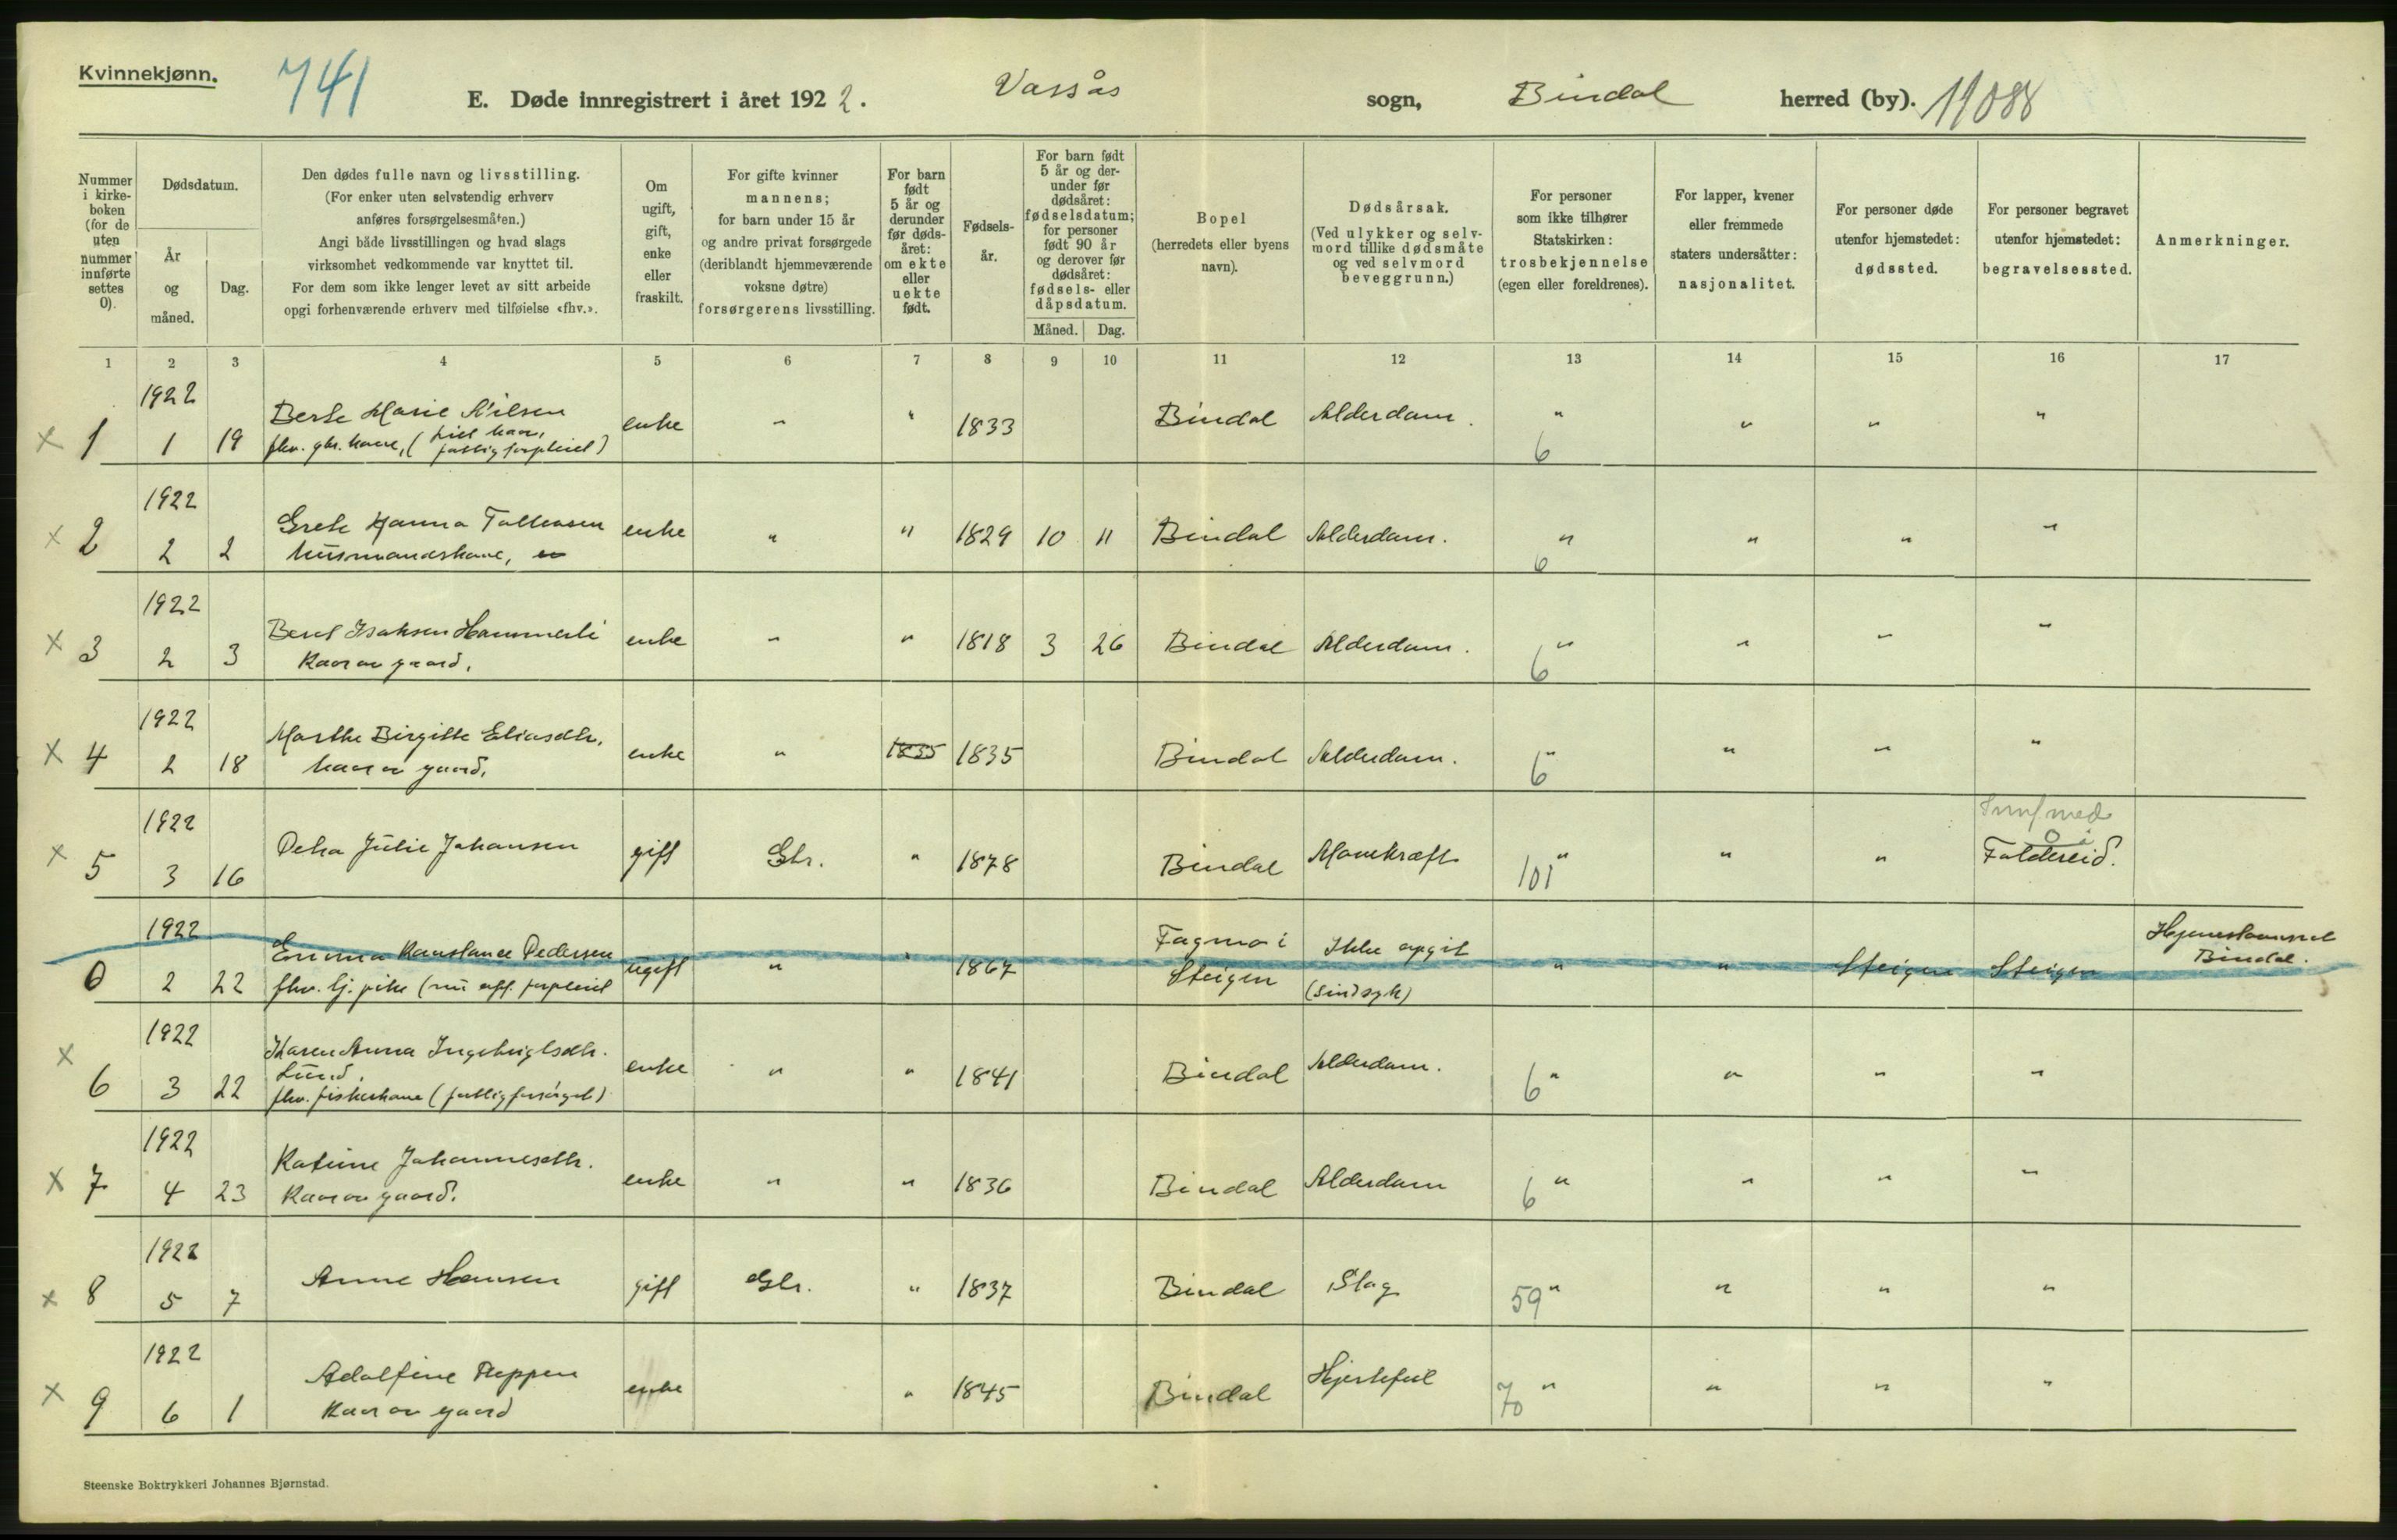 Kvinnekjønn.
741
E. Døde innregistrert i året 1922. Vassås sogn, Bindal herred (by). 11088
Nummer i kirke-boken (for de uten nummer innførte settes 0).
Dødsdatum.
År og måned.
Dag.
Den dødes fulle navn og livsstilling.
(For enker uten selvstendig erhverv
anføres forsørgelsesmåten.)
Angi både livsstillingen og hvad slags
virksomhet vedkommende var knyttet til.
For dem som ikke lenger levet av sitt arbeide
opgi forhenværende erhverv med tilføielse «fhv.».
Om
ugift,
gift,
enke
eller
fraskilt.
For gifte kvinner
mannens;
for barn under 15 år
og andre privat forsørgede
(deriblandt hjemmeværende
voksne døtre)
forsørgerens livsstilling.
For barn
født
5 år og
derunder
før døds-
året:
om ekte
eller
uekte
født.
Fødsels-
år.
For barn født
5 år og der-
under før
dødsåret:
fødselsdatum;
for personer
født 90 år
og derover før
dødsåret:
fødsels- eller
dåpsdatum.
Måned. Dag.
Bopel
(herredets eller byens
navn).
Dødsårsak.
(Ved ulykker og selv-
mord tillike dødsmåte
og ved selvmord
beveggrunn.)
For personer
som ikke tilhører
Statskirken:
trosbekjennelse
(egen eller foreldrenes).
For lapper, kvener
eller fremmede
staters undersåtter:
nasjonalitet.
For personer døde
utenfor hjemstedet:
dødssted.
For personer begravet
utenfor hjemstedet:
begravelsessted.
Anmerkninger.
1 2 3 4 5 6 7 8 9 10 11 12 13 14 15 16 17
1922
x 1 1 19 Marie Nilsen enke " " 1833 Bindal Alderdom. " " " "
6
1922
x 2 2 2 Hanna enke " " 1829 10 11 Bindal Alderdom. " " " "
6
1922
x 3 2 3 Isaksen enke " " 1818 3 26 Bindal Alderdom. " " " "
Kaar av gaard. 6
1922
x 4 2 18 Marthe Birgitte Eliasdtr. enke " 1835 1835 Bindal Alderdom. " " " "
kaar av gaard. 6
1922
x 5 3 16 Julie Johansen gift Gbr. " 1878 Bindal Mavekræft " " " Foldereid.
101
1922
0 2 22 Emma Konstance Pedersen ugift " " 1867 Fagmo i Steigen Ikke opgit (sindsyk) " " Steigen Steigen Bindal.
fhv. tj. pike
1922
x 6 3 22 Karen Anna enke " " 1841 Bindal Alderdom. " " " "
Lund.
fhv. fiskerkone 6
1922
x 7 4 23 Johannesdtr. enke " " 1836 Bindal Alderdom " " " "
Kaar av gaard. 6
1922
x 8 5 7 Anne Hansen gift Gbr. " 1837 Bindal Slag " " " "
59
1922
x 9 6 1 Adolfine enke " 1845 Bindal Hjertefeil " " " "
Kaar av gaard 70
Steenske Boktrykkeri Johannes Bjørnstad.